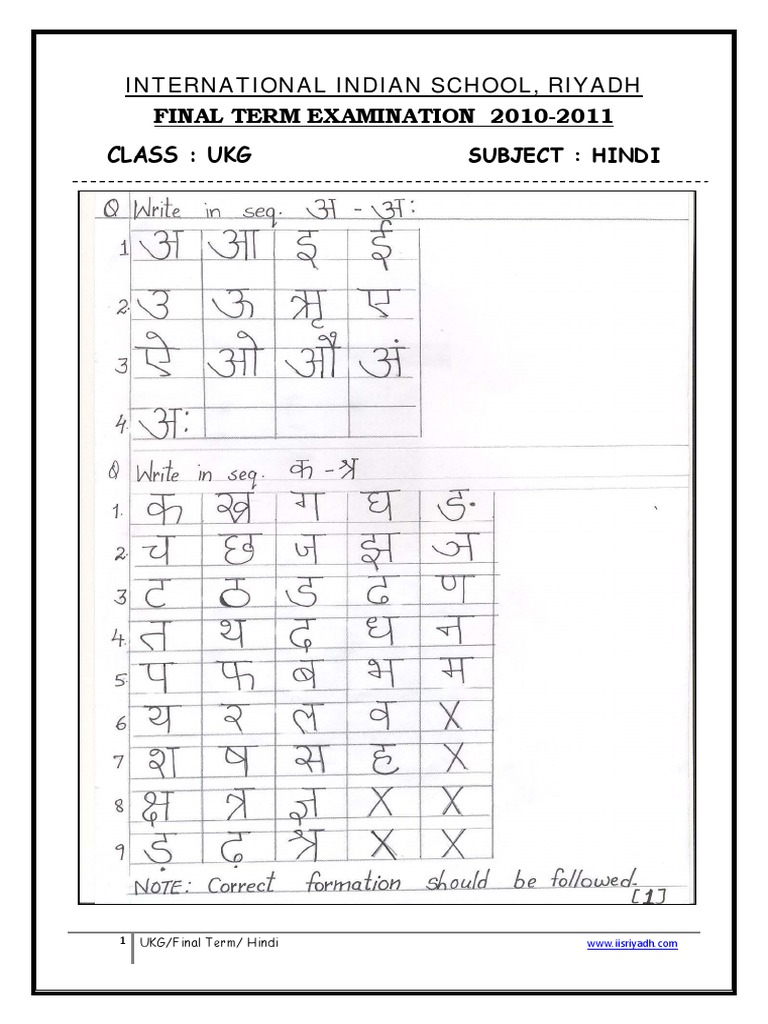 INTERNATIONAL INDIAN SCHOOL, RIYADH
FINAL TERM EXAMINATION 2010-2011
CLASS : UKG SUBJECT : HINDI
Q Write in seq. अ - अ:
1 अ आ इ ई
2. उ ऊ ऋ ए
3 ऐ ओ औ अं
4. अ:
Q Write in seq. क - श्र
1. क ख ग घ ङ
2. च छ ज झ ञ
3 ट ठ ड ढ ण
4. त थ द ध न
5. प फ ब भ म
6 य र ल व X
7 श ष स ह X
8 क्ष त्र ज्ञ X X
9 ड़ ढ़ श्र X X
NOTE: Correct formation should be followed.
[1]
1 UKG/Final Term/ Hindi www.iisriyadh.com